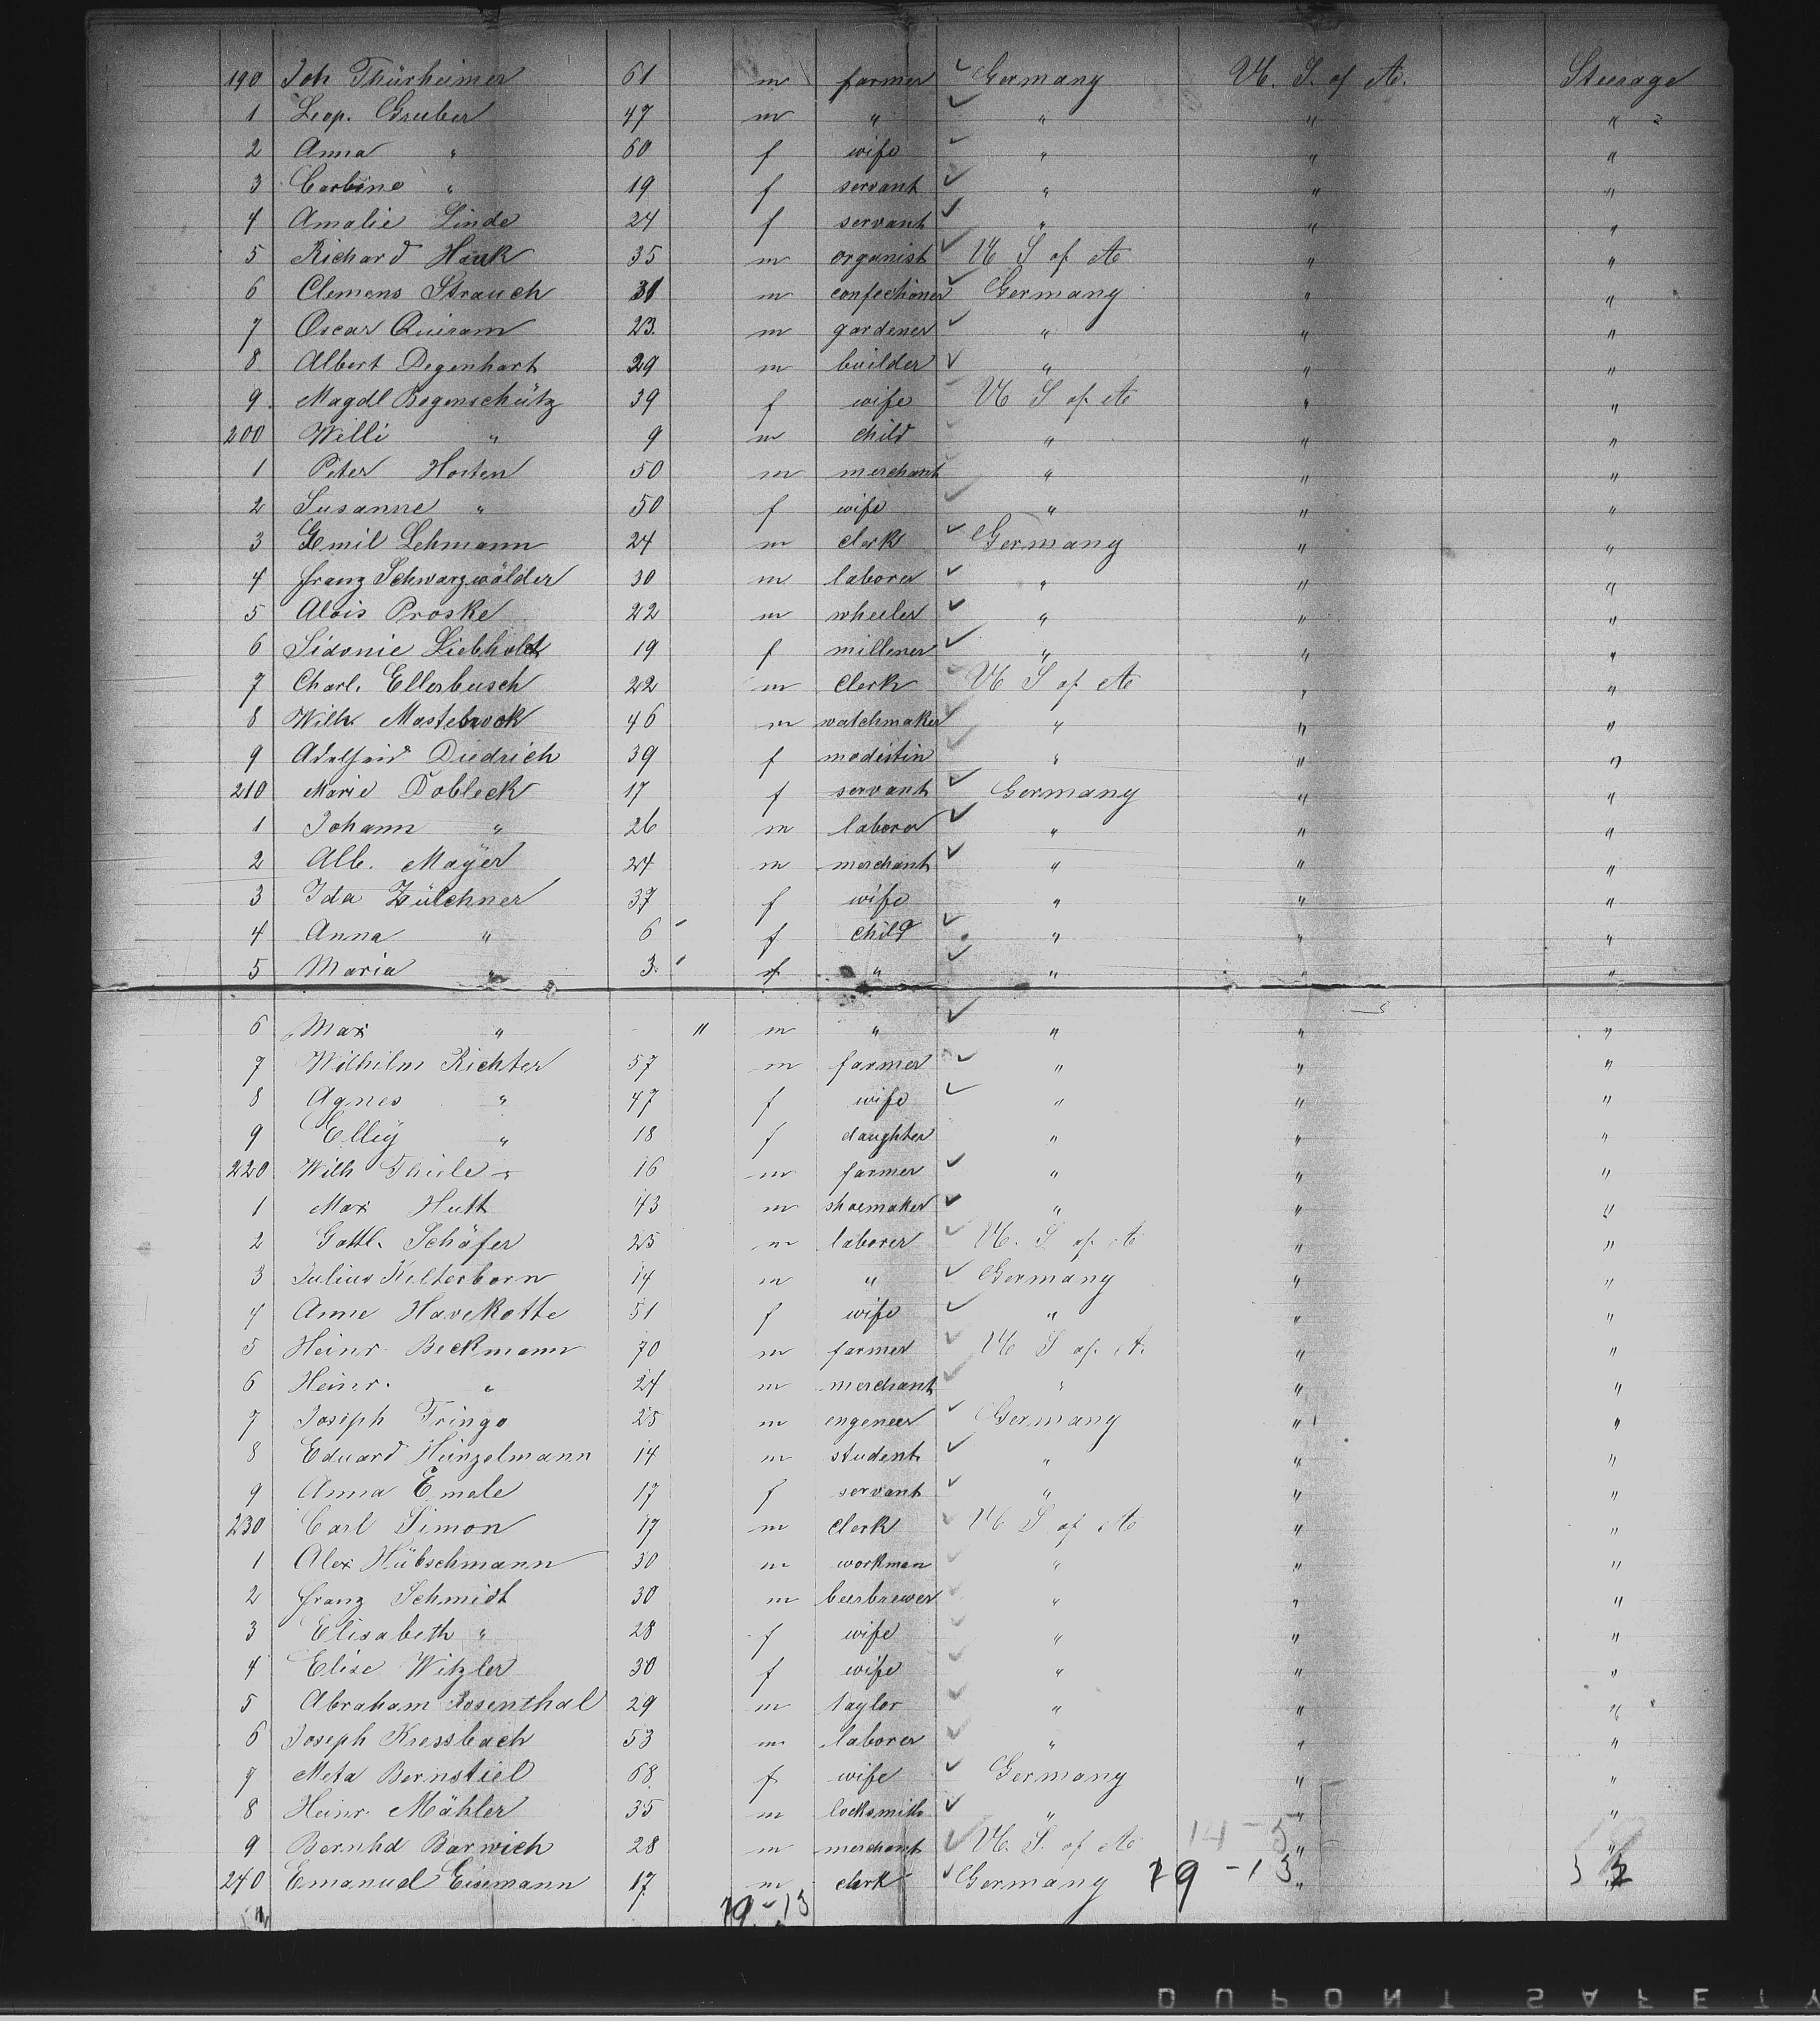 190 Joh Thürheimer 61 m farmer ✓ Germany U. S. of A. Steerage
1 Leop. Gruber 47 m " ✓ " " "
2 Anna " 60 f wife ✓ " " "
3 Carline " 19 f servant ✓ " " "
4 Amalie Linde 24 f servant ✓ " " "
5 Richard Hauk 35 m organist ✓ U S of A " "
6 Clemens Strauch 31 m confectioner ✓ Germany " "
7 Oscar Quiram 23. m gardener ✓ " " "
8 Albert Degenhart 29 m builder ✓ " " "
9. Magdl Bogenschütz 39 f wife U S of A " "
200 Willi " 9 m child " " "
1 Peter Horten 50 m merchant " " "
2 Susanne " 50 f wife ✓ " " "
3 Emil Lehmann 24 m clerk ✓ Germany " "
4 Franz Schwarzwälder 30 m laborer ✓ " " "
5 Alois Proske 22 m wheeler ✓ " " "
6 Sidonie Liebholdt 19 f millener ✓ " " "
7 Charl. Ellerbusch 22 m Clerk U S of A " "
8 Wilh Mastebrook 46 m watchmaker ✓ " " "
9 Diedrich 39 f modistin ✓ " " "
210 Marie Dobleck 17 f servant ✓ Germany " "
1 Johann " 26 m laborer ✓ " " "
2 Alb. Mayer 24 m merchant ✓ " " "
3 Ida Zülchner 37 f wife " " "
4 Anna " 6 f child ✓ " " "
5 Maria " 3. f " ✓ " " "
6 Max " " m " ✓ " " "
7 Wilhelm Richter 57 m farmer ✓ " " "
8 Agnes " 47 f wife ✓ " " "
9 Elly " 18 f daughter " " "
220 Wilh Thiele 16 m farmer ✓ " " "
1 Max Hutt 43 m shoemaker ✓ " " "
2 Gottl. Schäfer 25 m laborer ✓ U. S. of A " "
3 Julius Kelterborn 14 m " ✓ Germany " "
4 Anne Havekotte 51 f wife ✓ " " "
5 Heinr. Beckmann 70 m farmer ✓ U S of A. " "
6 Heinr. " 24 m merchant ✓ " " "
7 Joseph Fringo 25 m engeneer ✓ Germany " "
8 Eduard Heinzelmann 14 m student ✓ " " "
9 Anna Emele 17 f servant ✓ " " "
230 Carl Simon 17 m clerk ✓ U S of A " "
1 Alex Hübschmann 30 m workman ✓ " " "
2 Franz Schmidt 30 m beerbrewer ✓ " " "
3 Elisabeth " 28 f wife ✓ " " "
4 Elise Witzler 30 f wife ✓ " " "
5 Abraham Rosenthal 29 m taylor ✓ " " "
6 Joseph Kressbach 53 m laborer ✓ " " "
7 Meta Bernstiel 68. f wife ✓ Germany " "
8 Heinr. Mähler 35 m locksmith ✓ " " "
9 Bernhd Barwich 28 m merchant ✓ U. S. of A 14-5 " "
240 Emanuel Eisemann 17 m clerk ✓ Germany 19-13 "
19-13
DUPONT SAFETY